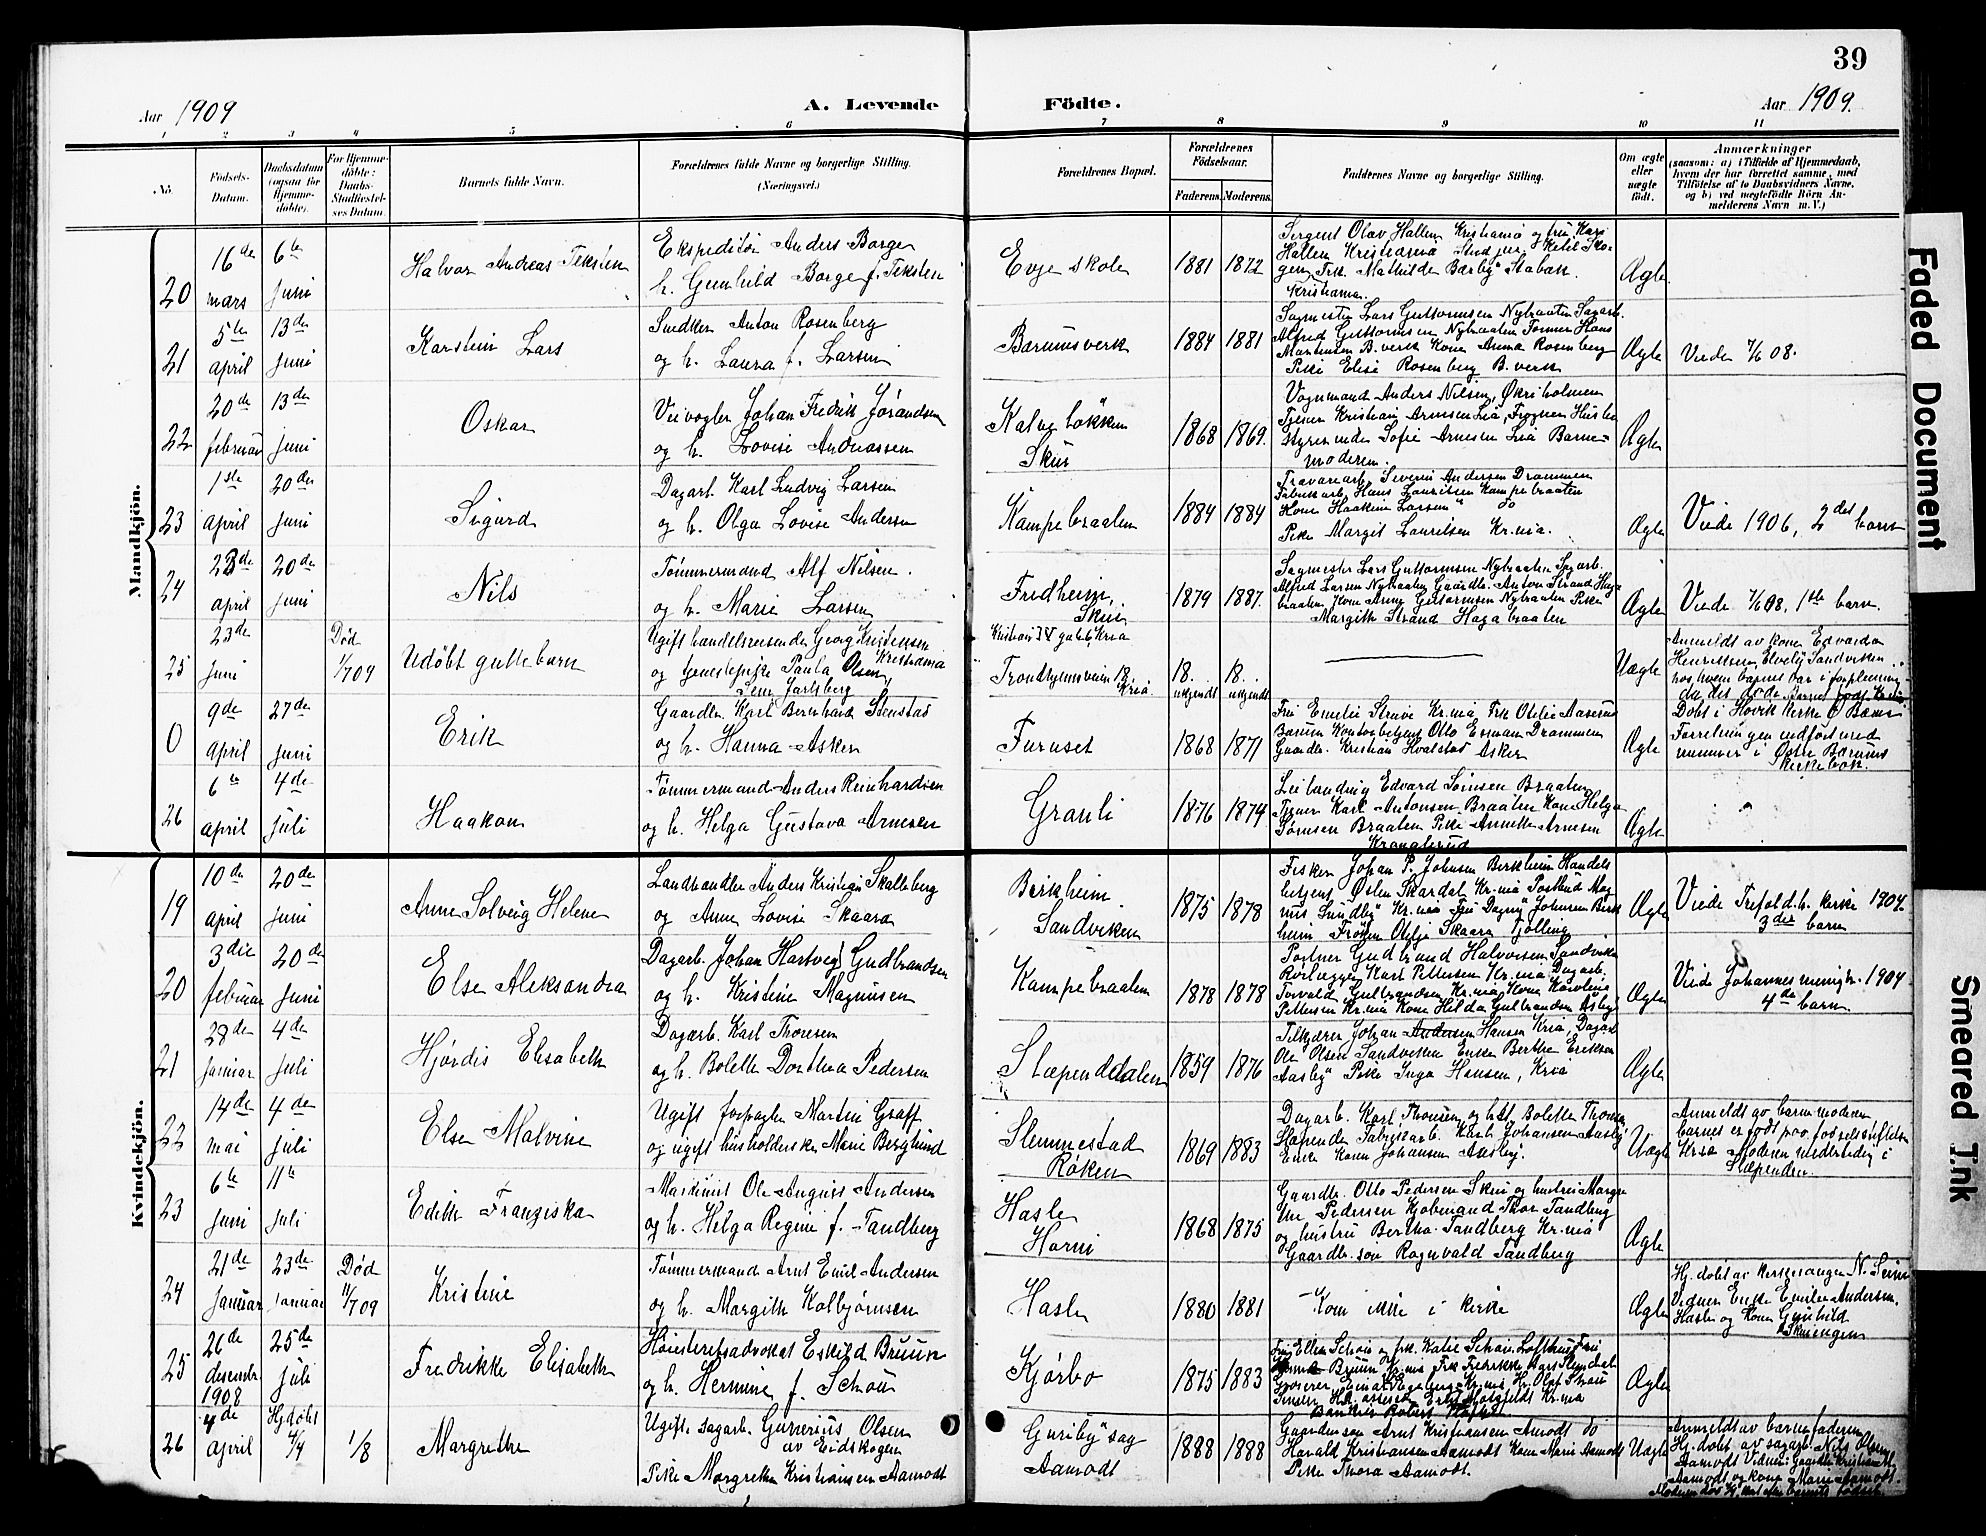 39
Aar 1909
A. Levende
Födte.
Aar 1909.
1 2 3 4 5 6 7 8 9 10 11
No.
Fødsels-Datum.
Daabsdatum (ogsaa for Hjemmedøbte).
For Hjemmedöbte: Daabs-Stadfæstelses Datum.
Barnets fulde Navn.
Forældrenes fulde Navne og borgerlige Stilling. (Næringsvei.)
Forældrenes Bopæl.
Forældrenes Födselsaar.
Faderens. Moderens.
Faddernes Navne og borgerlige Stilling.
Om ægte eller uægte født.
Anmærkninger
(saasom: a) i Tilfælde af Hjemmedaab, hvem der har forrettet samme, med Tilföielse af to Daabsvidners Navne, og b) ved uægtefödte Börn Anmelderens Navn m. V.)
Mandkjön.
20 16de mars 6te juni
Halvor Andreas Teksten
Ekspeditör Anders Borge
h. Gunhild Borge f. Teksten
Evje skole 1881 1872
Sergent Olav Hallen Kristiania og fru Kari
Hallen Kristiania Stud jur. Ketil Sko-
gen Frk. Mathilde Bærby Stabæk.
Kristiania.
Ægte
21 5te april 13de juni
Karstein Lars
Snedker Anton Rosenberg
og h. Laura f. Larsen
Bærumsverk 1884 1881
Sagmester Lars Guttormsen Nybraaten Sagarb.
Alfred Guttormsen Nybraaten Former Hans
Martinsen B. verk Kone Anna Rosenberg
Pike Elise Rosenberg B. verk
Ægte
Viede 7/6 08.
22 20de februar 13de juni
Oskar
Veivogter Johan Fredrik Jörandsen
og h. Lovise Andreassen
Kalvelökken
Skui
1868 1869.
Vognmand Anders Nilsen, Økriholmen
Tjener Kristian Arnesen Lia, Frognen Husbe-
styrerinden Sofie Arnesen Lia Barne-
moderen.
Ægte
23 1ste april 20de juni
Sigurd
Dagarb. Karl Ludvig Larsen
og h. Olga Lovise Andersen
Kampebraaten 1884 1884
Travarearb. Severin Andersen Drammen
Fabrikarb. Hans Lauritsen Kampebraaten
Kone Haakine Larsen do
Pike Margit Lauritsen Kr.nia.
Ægte
Viede 1906, 2det barn
24 23de april 20de juni
Nils
Tömmermand Alf Nilsen.
og h. Marie Larsen
Fredheim,
Skui
1879 1887.
Sagmester Lars Guttormsen Nybraaten Sagarb.
Alfred Larsen Nybraaten Gaardbr. Anton Strand Haga-
braaten, Kone Anne Guttormsen Nybraaten Pike
Margith Strand Hagabraaten
Ægte
Viede 7/6 08, 1ste barn.
25 23de juni
Död 1/7 09
Udöbt guttebarn
Ugift handelsreisende Georg Kristensen
Kristiania
og tjenestepike Paula Olsen,
Sem Jarlsberg
Kristian IV gate 6, Kria
Trondhjemsveien 18
Kria
18.. 18..
ukjendt ukjendt
Uægte
Anmeldt av kone Edvarda
Henriksen, Elvely Sandviken
hos hvem barnet var i forpleining
da det döde Barnet födt Kria
0 9de april 27de juni
Erik
Gaardbr. Karl Bernhard Stenstad
og h. Hanna Asker
Furuset 1868 1871
Fru Emilie Struve Kr.nia Frk Otilie Aaserud
Bærum Kontorbetjent Otto Erman Drammen
Gaardbr. Kristian Hvalstad Asker
Ægte
Döbt i Hövik kirke Ö Bærum
Forretningen indfört med
nummer i Østre Bærums
kirkebok.
26 6te april 4de juli
Haakon
Tömmermand Anders Reinhardsen
og h. Helga Gustava Arnesen
Granli 1876 1874
Leilænding Edvard Simsen Braaten
Tjener Karl Antonsen Braaten Kone Helga
Simsen Braaten Pike Annette Arnesen
Kranglerud
Ægte
Kvindekjön.
19 10de april 20de juni
Anne Solveig Helene
Landhandler Anders Kristian Skalleberg
og Anne Lovise Skaara
Berkheim
Sandviken
1875 1878
Fisker Johan P. Johnsen Berkheim Handels
betjent Østen Skardal Kr.nia Postbud Mag
nus Sundby Kr.nia Fru Dagny Johnsen Birk
heim Fröken Otilje Skaara Tjölling
Ægte
Viede Trefold.h. kirke 1904.
3de barn
20 3die februar 20de juni
Else Aleksandra
Dagarb. Johan Hartvig Gudbrandsen
og h. Kristine Magnusen
Kampebraaten 1878 1878
Portner Gudbrand Halvorsen Sandviken
Rörlægger Karl Pettersen Kr.nia Dagarb.
Torvald Gulbrandsen Kr.nia, Kone Karoline
Pettersen Kr.nia Kone Hilda Gulbrandsen Aasby
Ægte
Viede Johannes menigh. 1904
4de barn
21 28de januar 4de juli
Hjördis Elisabeth
Dagarb. Karl Thoresen
og h. Bolette Dorthea Pedersen
Slæpenddalen 1859 1876
Tilkjörer Johan Andersen Hansen Kria, Dagarb
Ole Olsen Sandviken Enke Berthe Eriksen
Aasby Pike Inga Hansen, Kria
Ægte
22 14de mai 4de juli
Else Malvine
Ugift forpagter Martin Graff
og ugift husholderske Marie Berglund
Slemmestad
Röken
1869 1883
Dagarb. Karl Thoresen og hst Bolette Thoresen
Slæpende Fabrikarb. Karl Johansen Aasby
Enke Karen Johansen Aasby.
Uægte
Anmeldt av barnemoderen
barnet er født paa fodselsstiftelsen
Kria Moderen midlertidig i
Slæpenden
23 6te juni 11te juli
Edith Franziska
Maskinist Ole August Andersen
og h. Helga Regine f. Tandberg
Hasle
Horni
1868 1875
Gaardbr. Otto Pedersen Skui og hustru Margre
the Pedersen Kjöbmand Thor Tandberg
og hustru Bertha Tandberg Kr.nia
Gaardbr. sön Ragnvald Tandberg
Ægte
24 21de januar 23de januar
Död 11/7 09
Kristine
Tömmermand Arnt Emil Andersen
og h. Margith Kolbjörnsen
Hasle 1880 1881
Kom ikke i kirke
Ægte
Hj. döbt av kirkesanger N. Seim
Vidner Enke Emilie Andersen,
Hasle og Kone Gunhild
Skuiengen
25 26de desember 1908 25de juli
Fredrikke Elisabeth
Höiesteretsadvokat Eskild Bruun
og h. Hermine f. Schou
Kjörbo 1875 1883
Bankier Robert
Ægte
26 4de april Hjdöbt 4/4 1/8
Margrethe
Ugift sagarb. Gunerius Olsen
av Eidskogen
Pike Margrethe Kristiansen Aamodt
Guriby sag
Aamodt
1888 1888
Gaardmandsön Arnt Kristiansen Aamodt do
Harald Kristiansen Aamodt Kone Marie Aamodt
Pike Thora Aamodt.
Uægte
Anmeldt av barnefaderen
Hj. döbt av sagarb. Nils Olsen
Aamodt Vidner: Gaardbr Kristian
Aamodt og kone Marie Aamodt.
Faded Document
Smeared Ink